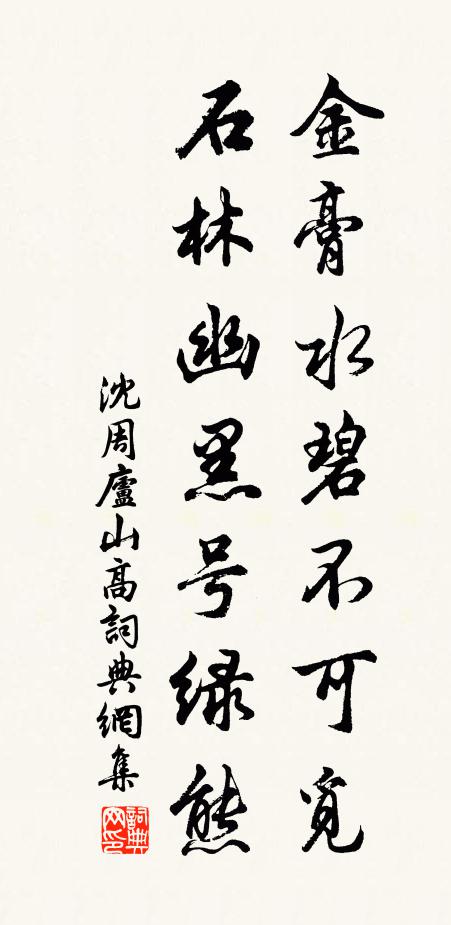 金膏水碧不可覓
石林幽黑号緑熊
沈周廬山高詞典網集
詞典网印